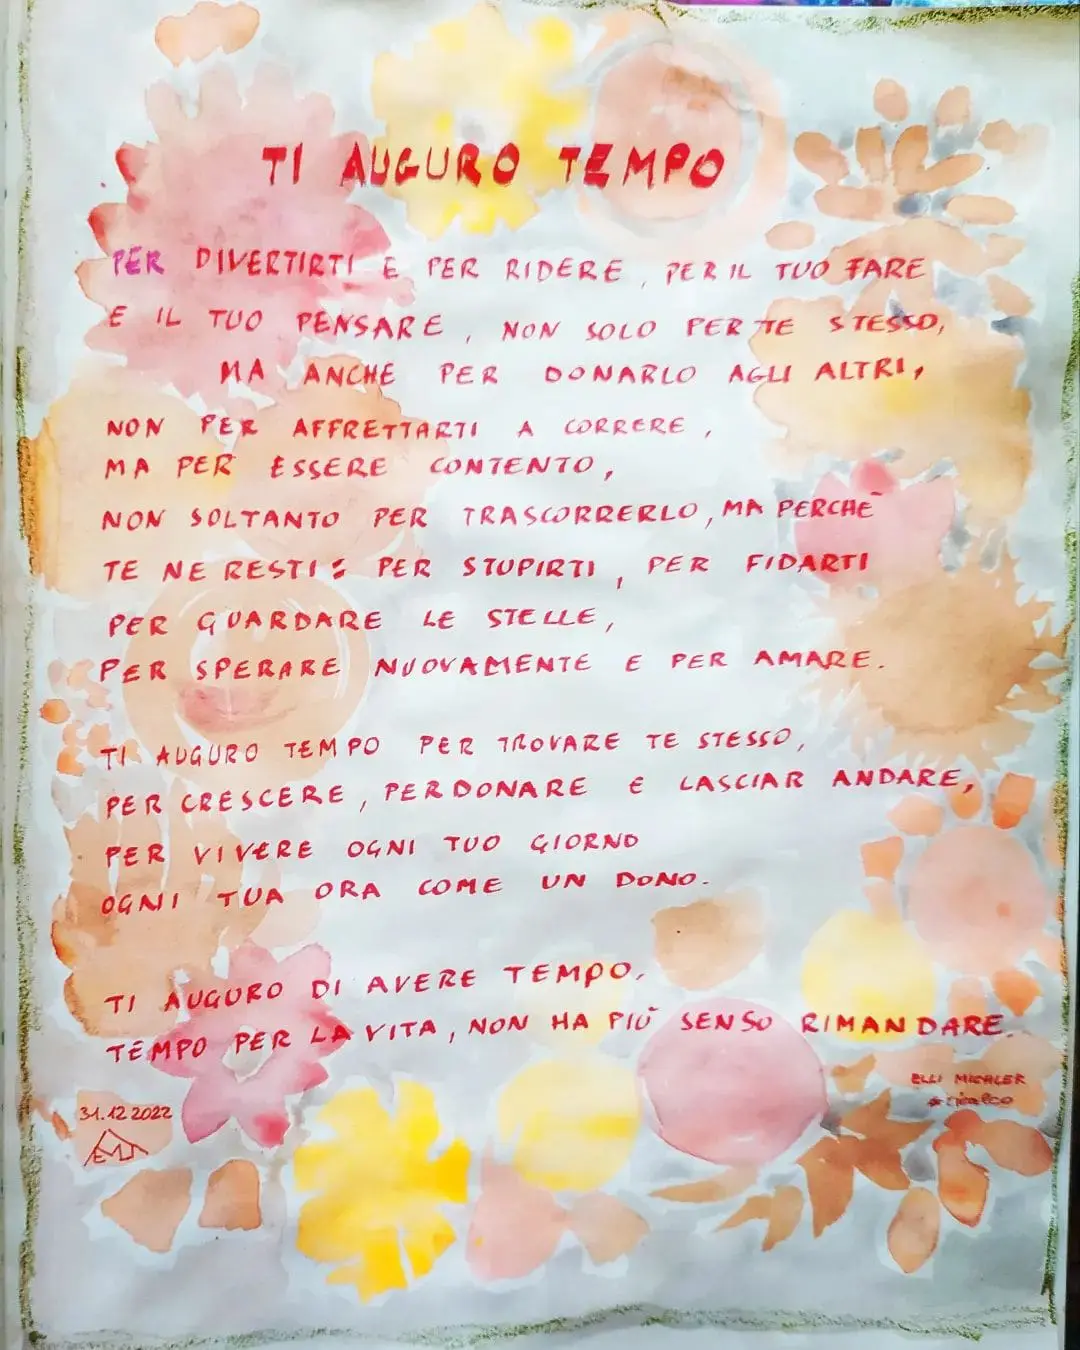 TI AUGURO TEMPO
PER DIVERTIRTI E PER RIDERE, PER IL TUO FARE
E IL TUO PENSARE, NON SOLO PER TE STESSO,
MA ANCHE PER DONARLO AGLI ALTRI,
NON PER AFFRETTARTI A CORRERE,
MA PER ESSERE CONTENTO,
NON SOLTANTO PER TRASCORRERLO, MA PERCHÈ
TE NE RESTI: PER STUPIRTI, PER FIDARTI
PER GUARDARE LE STELLE,
PER SPERARE NUOVAMENTE E PER AMARE.
TI AUGURO TEMPO PER TROVARE TE STESSO,
PER CRESCERE, PERDONARE E LASCIAR ANDARE,
PER VIVERE OGNI TUO GIORNO
OGNI TUA ORA COME UN DONO.
TI AUGURO DI AVERE TEMPO,
TEMPO PER LA VITA, NON HA PIÙ SENSO RIMANDARE.
ELLI MICHLER
31.12.2022